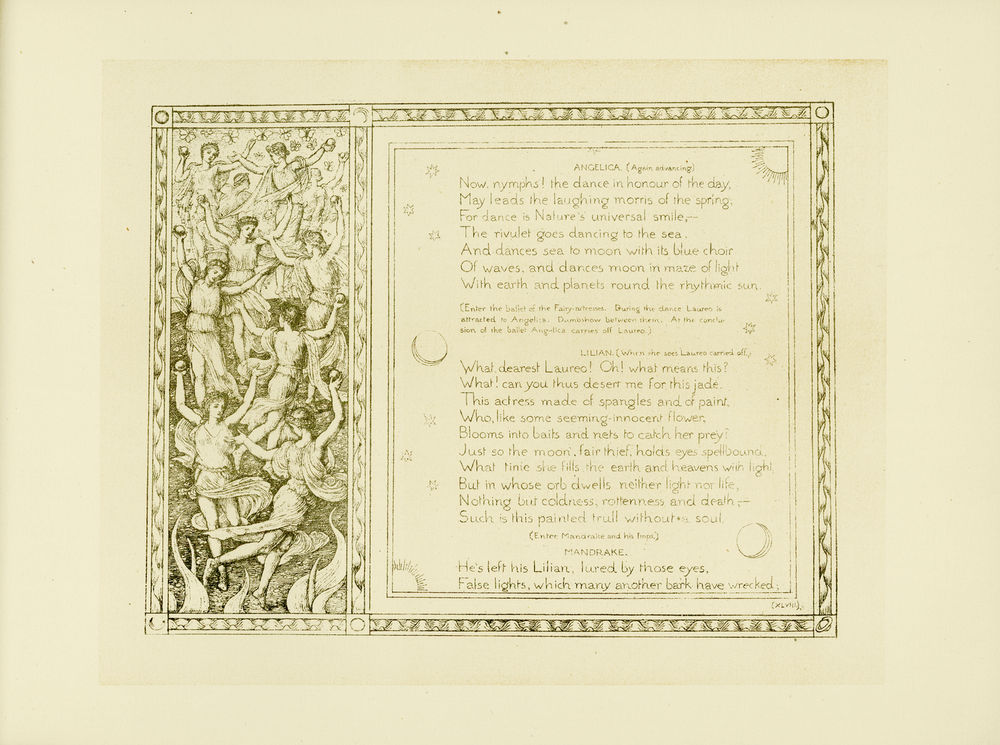 ANGELICA. (Again advancing)
Now, nymphs! the dance in honour of the day,
May leads the laughing morris of the spring;
For dance is Nature's universal smile,—
The rivulet goes dancing to the sea,
And dances sea to moon with its blue choir
Of waves, and dances moon in maze of light
With earth and planets round the rhythmic sun.
(Enter the ballet of the Fairy-actresses. During the dance Laureo is
attracted to Angelica. Dumbshow between them. At the conclu-
sion of the ballet Angelica carries off Laureo.)
LILIAN. (When she sees Laureo carried off.)
What, dearest Laureo! Oh! what means this?
What! can you thus desert me for this jade.
This actress made of spangles and of paint,
Who, like some seeming-innocent flower,
Blooms into baits and nets to catch her prey?
Just so the moon, fair thief, holds eyes spellbound,
What time she fills the earth and heavens with light,
But in whose orb dwells neither light nor life,
Nothing but coldness, rottenness and death,—
Such is this painted trull without a soul.
(Enter Mandrake and his Imps.)
MANDRAKE.
He's left his Lilian, lured by those eyes,
False lights, which many another bark have wrecked;
(XLVIII).